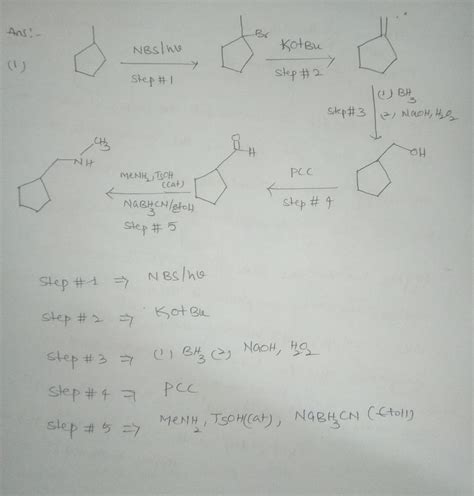 Ans:-
(1)
NBS/hν
Step #1
Br
KOtBu
Step #2
Step #3
(1) BH3
(2) NaOH, H2O2
OH
PCC
Step # 4
O
H
MeNH2, TsOH
(cat)
NaBH3CN/EtOH
Step # 5
CH3
NH
Step #1 ⇒ NBS/hν
Step #2 ⇒ KOtBu
Step #3 ⇒ (1) BH3 (2) NaOH, H2O2
Step #4 ⇒ PCC
Step #5 ⇒ MeNH2, TsOH(cat), NaBH3CN (EtOH)